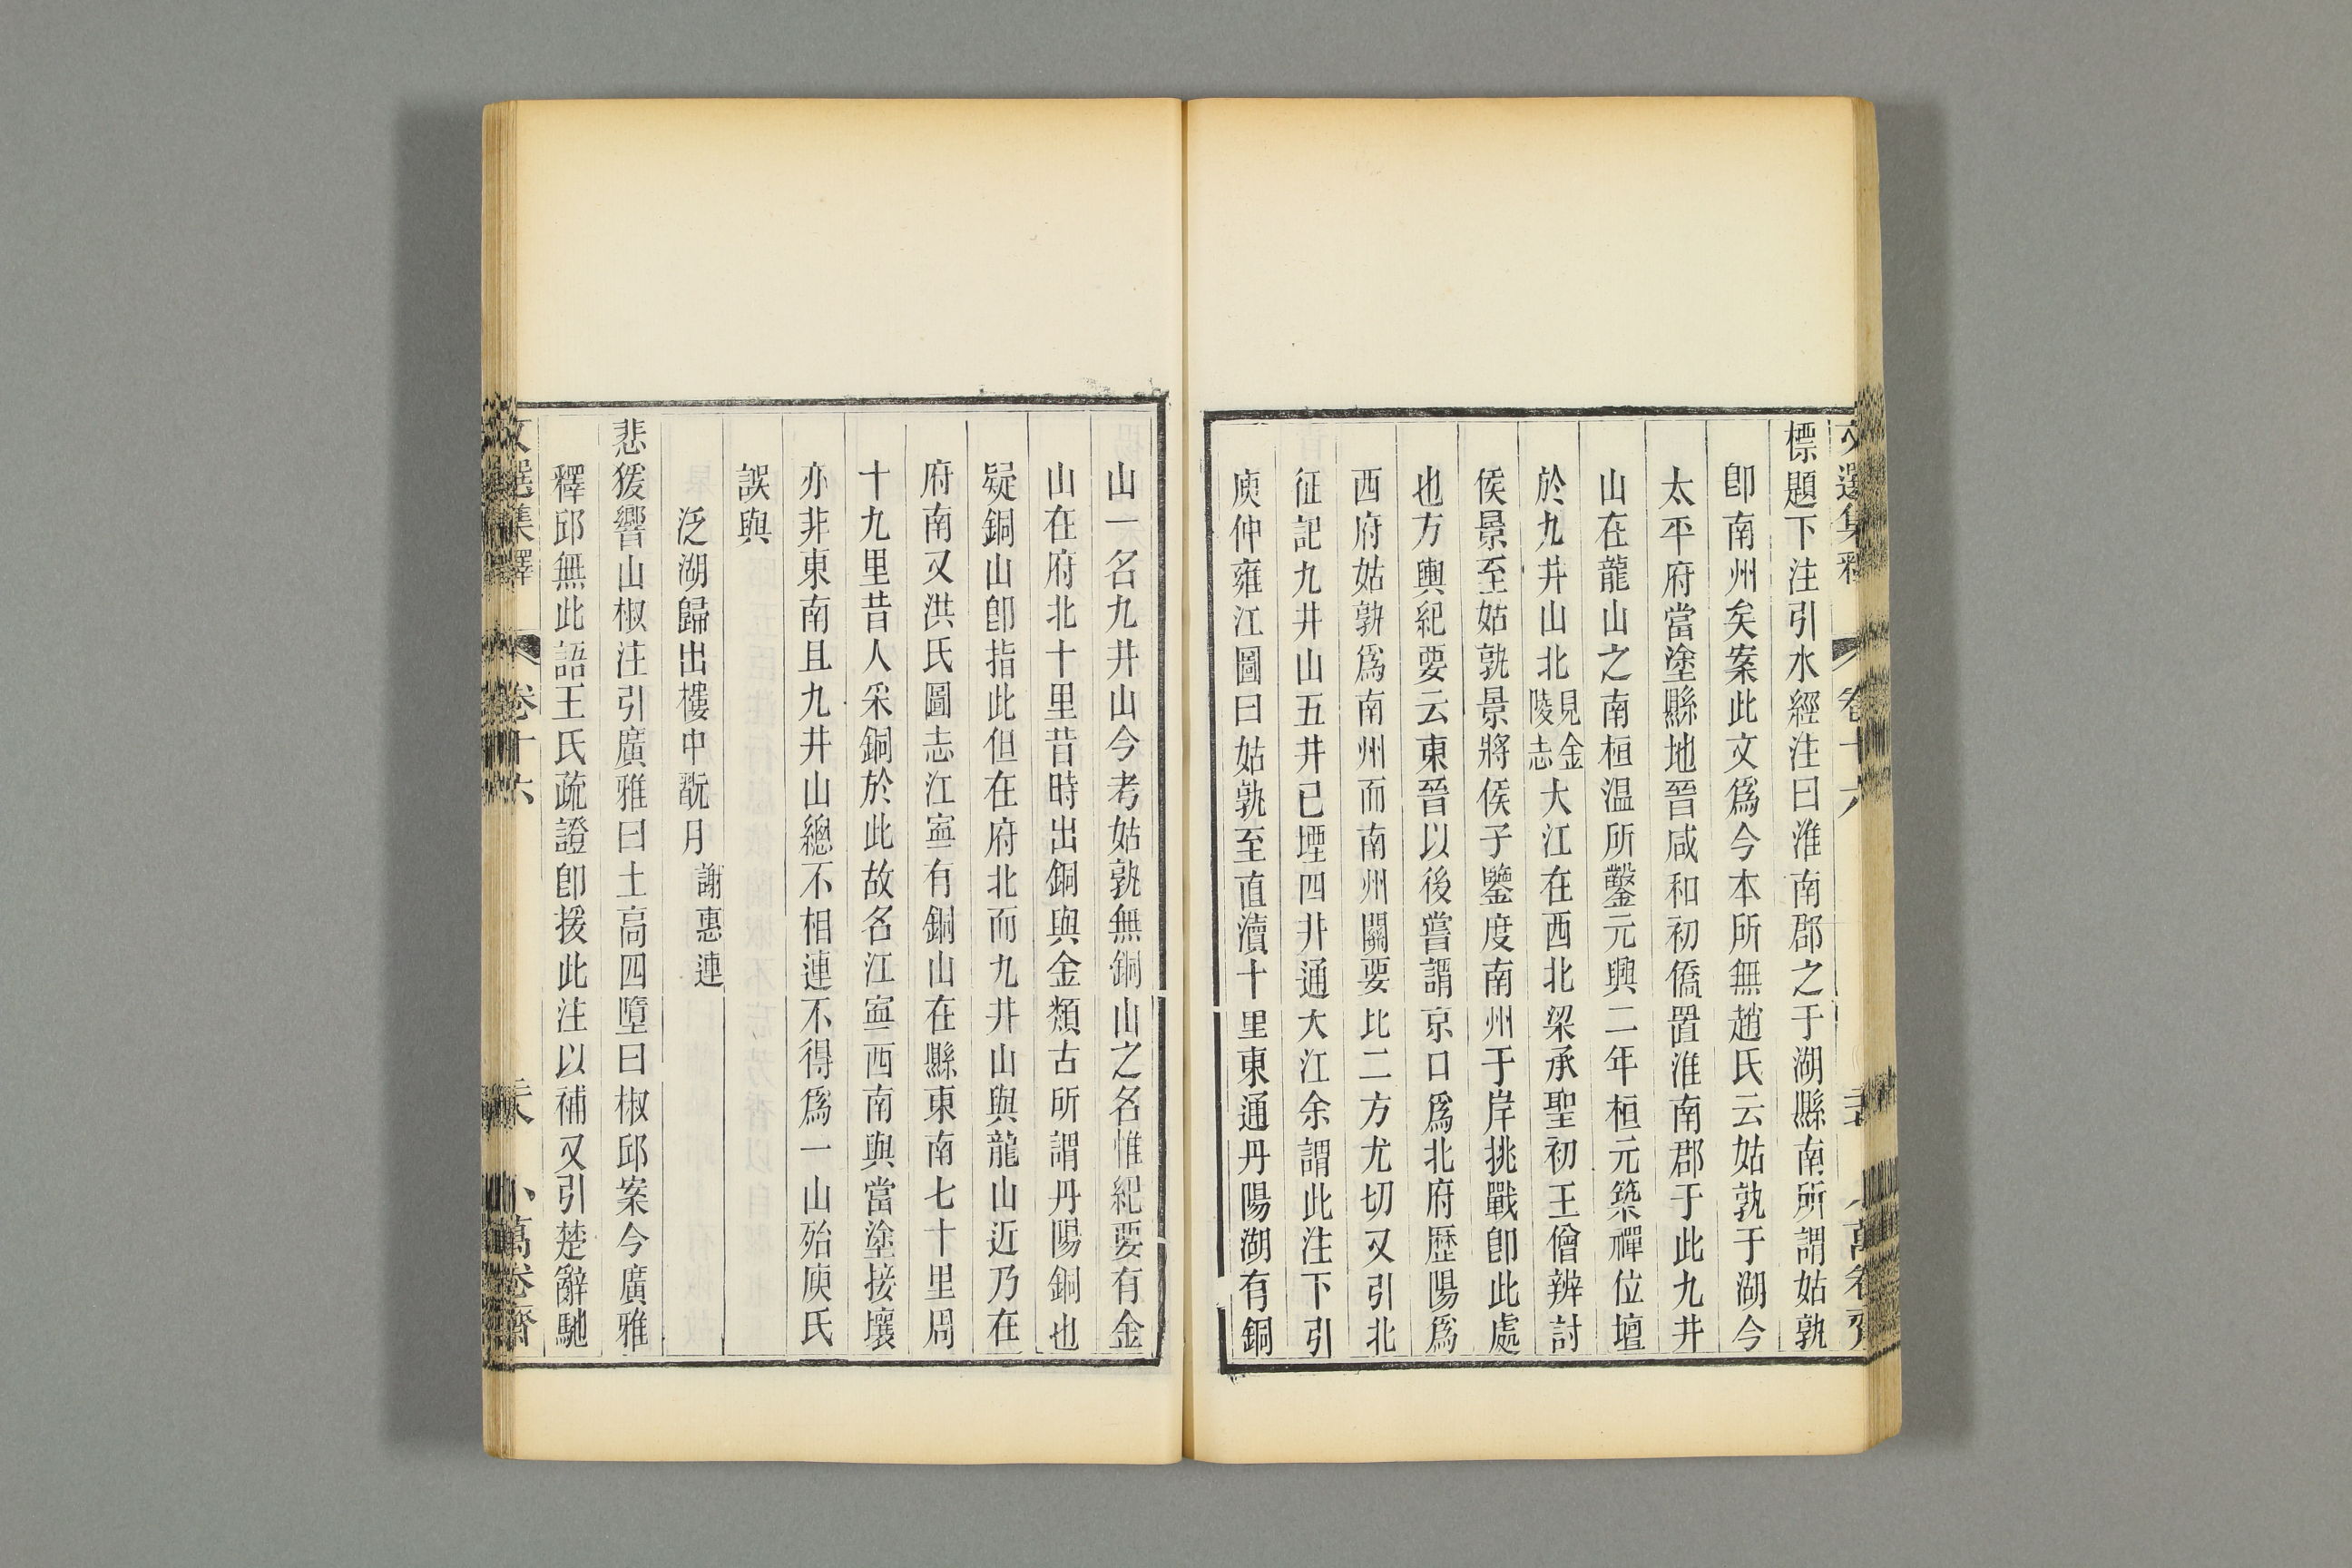 文選集釋 卷十六 萬卷齋
標題下注引水經注曰淮南郡之于湖縣南所謂姑孰
卽南州矣案此文爲今本所無趙氏云姑孰于湖今
太平府當塗縣地晉咸和初僑置淮南郡于此九井
山在龍山之南桓温所鑿元興二年桓元築禪位壇
於九井山北見金陵志大江在西北梁承聖初王僧辨討
侯景至姑孰景將侯子鑒度南州于岸挑戰卽此處
也方輿紀要云東晉以後嘗謂京口爲北府歷陽爲
西府姑孰爲南州而南州關要比二方尤切又引北
征記九井山五井已堙四井通大江余謂此注下引
庾仲雍江圖曰姑孰至直瀆十里東通丹陽湖有銅
山一名九井山今考姑孰無銅山之名惟紀要有金
山在府北十里昔時出銅與金類古所謂丹陽銅也
疑銅山卽指此但在府北而九井山與龍山近乃在
府南又洪氏圖志江寕有銅山在縣東南七十里周
十九里昔人采銅於此故名江寕西南與當塗接壤
亦非東南且九井山總不相連不得爲一山殆庾氏
誤與
泛湖歸出樓中翫月 謝惠連
悲猨響山椒注引廣雅曰土高四墮曰椒邱案今廣雅
釋邱無此語王氏疏證卽援此注以補又引楚辭馳
文選集釋 卷十六 萬卷齋